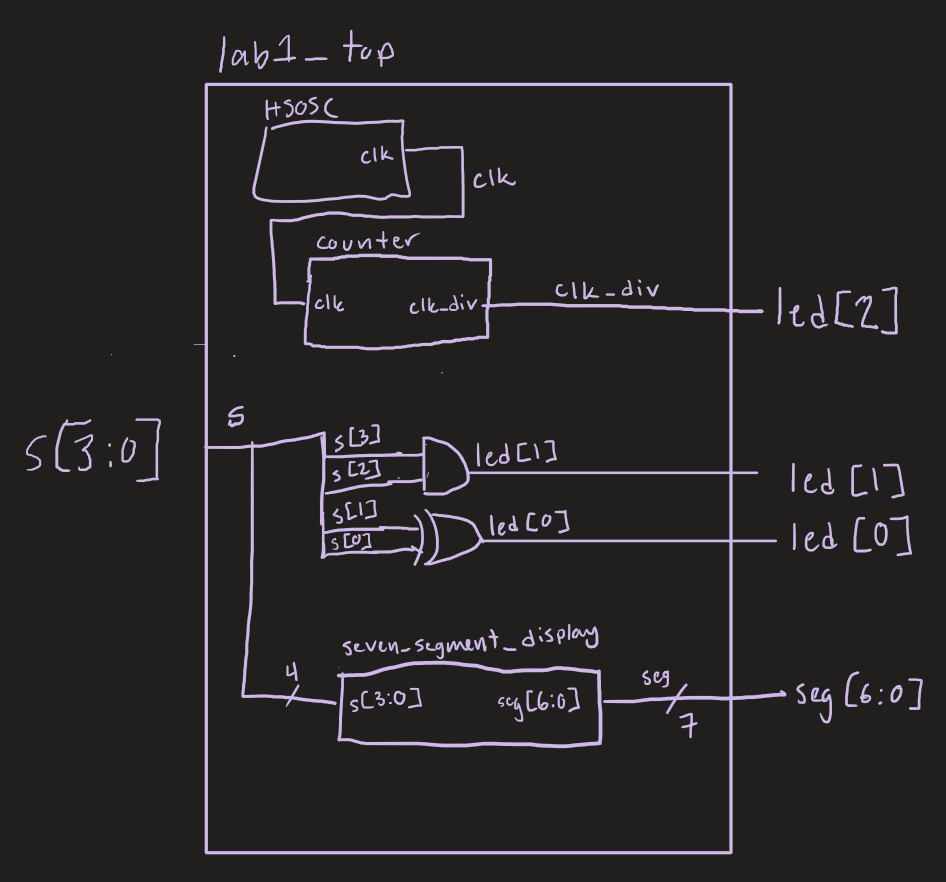 lab1_top
HSOSC
clk
clk
counter
clk
clk_div
clk_div
led[2]
S[3:0]
s
s[3]
s[2]
led[1]
led[1]
s[1]
s[0]
led[0]
led[0]
seven_segment_display
4
s[3:0]
seg[6:0]
seg
7
seg[6:0]